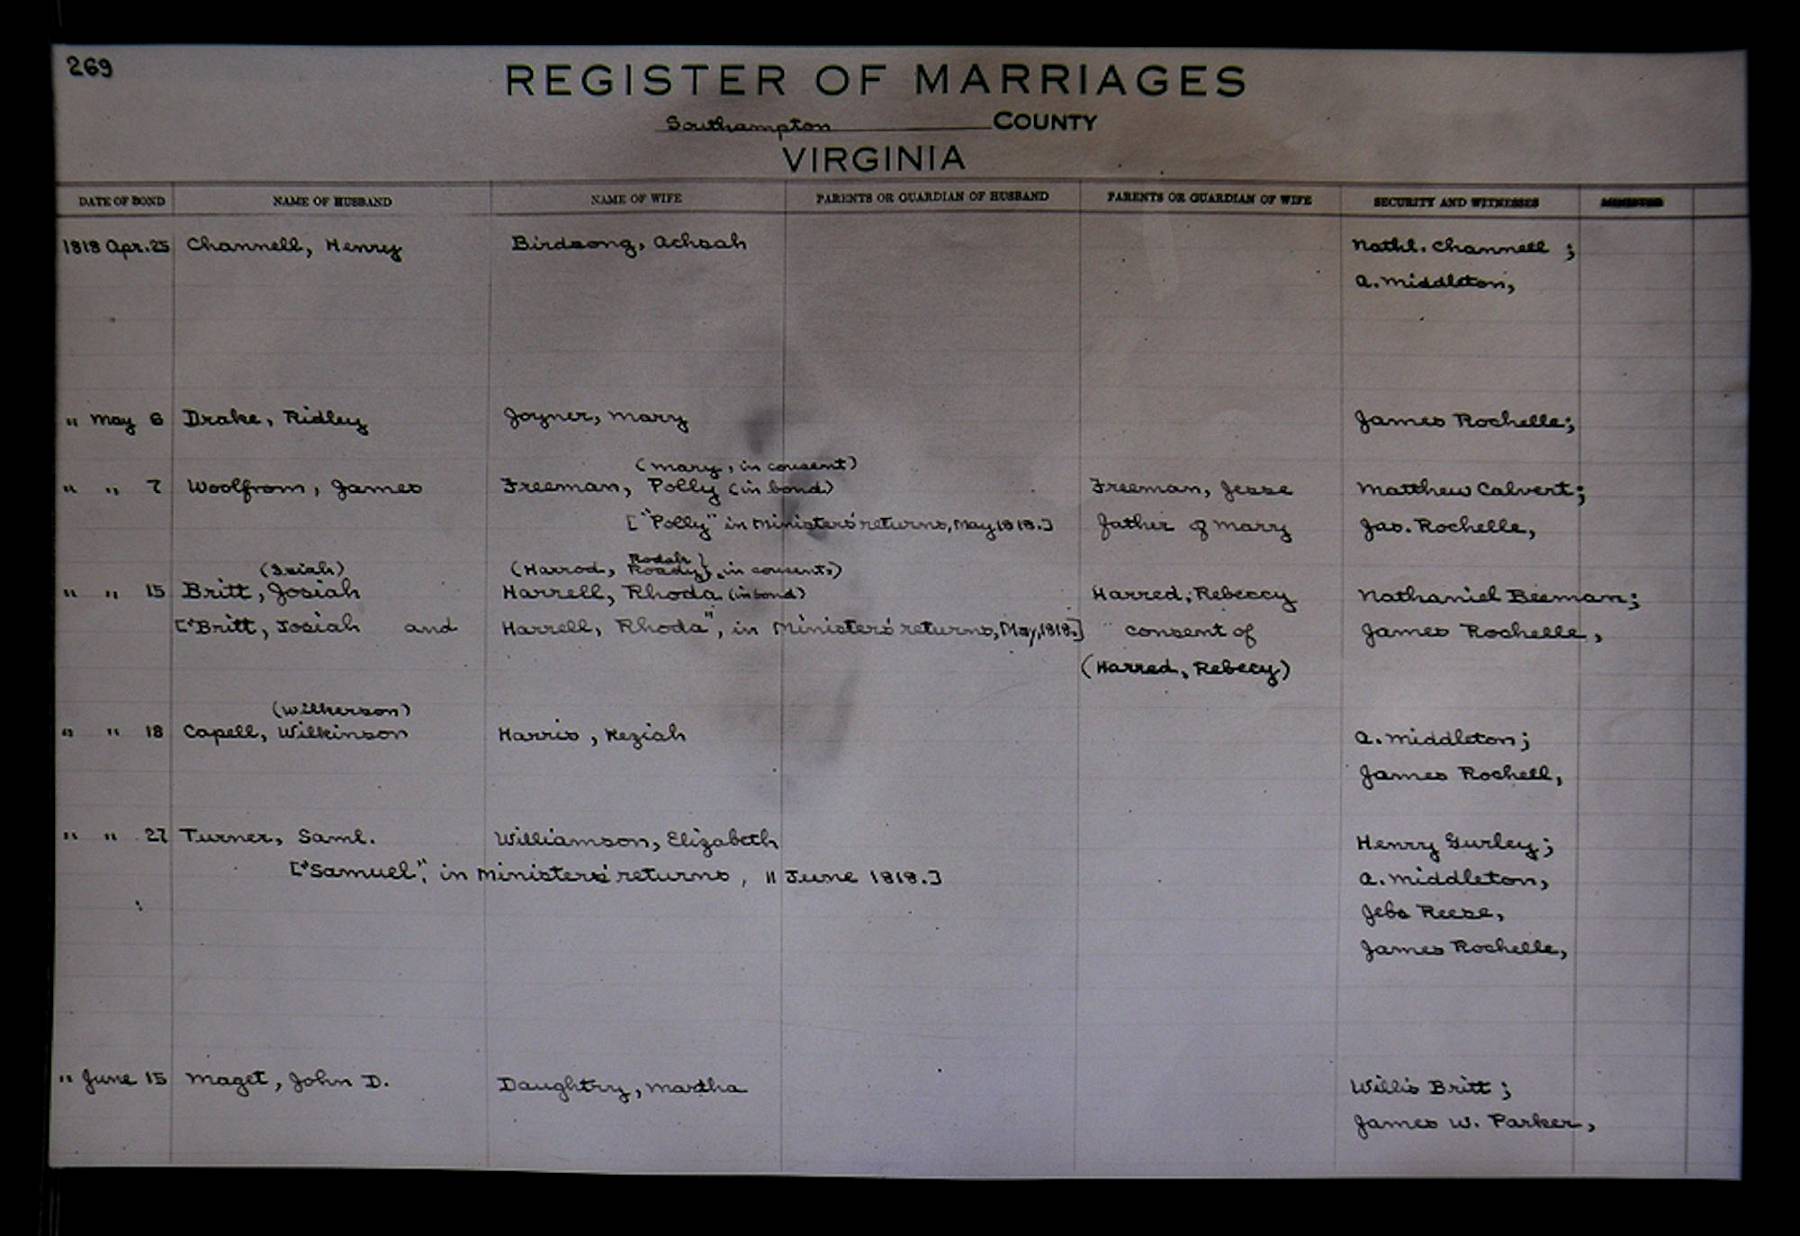 269
REGISTER OF MARRIAGES
Southampton COUNTY
VIRGINIA
DATE OF BOND NAME OF HUSBAND NAME OF WIFE PARENTS OR GUARDIAN OF HUSBAND PARENTS OR GUARDIAN OF WIFE SECURITY AND WITNESSES MINISTER
1818 Apr. 25 Channell, Henry Birdsong, Achsah Nathl. Channell ;
A. Middleton,
" May 6 Drake, Ridley Joyner, Mary James Rochelle;
(Mary, in consent)
" " 7 Woolfrom, James Freeman, Polly (in bond) Freeman, Jesse Matthew Calvert;
["Polly" in Ministers' returns, May 1818.] father of Mary Jas. Rochelle,
Rodah }
(Isiah) (Harrod, Roady}, in consents)
" " 15 Britt, Josiah Harrell, Rhoda (in bond) Harred, Rebeccy Nathaniel Beeman;
["Britt, Josiah and Harrell, Rhoda", in Ministers' returns, May, 1818.] consent of James Rochelle,
(Harred, Rebecy)
(Wilkerson)
" " 18 Capell, Wilkinson Harris, Keziah A. Middleton;
James Rochell,
" " 27 Turner, Saml. Williamson, Elizabeth Henry Gurley;
["Samuel", in Ministers' returns, 11 June 1818.] A. Middleton,
Jebo Reese,
James Rochelle,
" June 15 Maget, John D. Daughtry, Martha Willis Britt ;
James W. Parker,